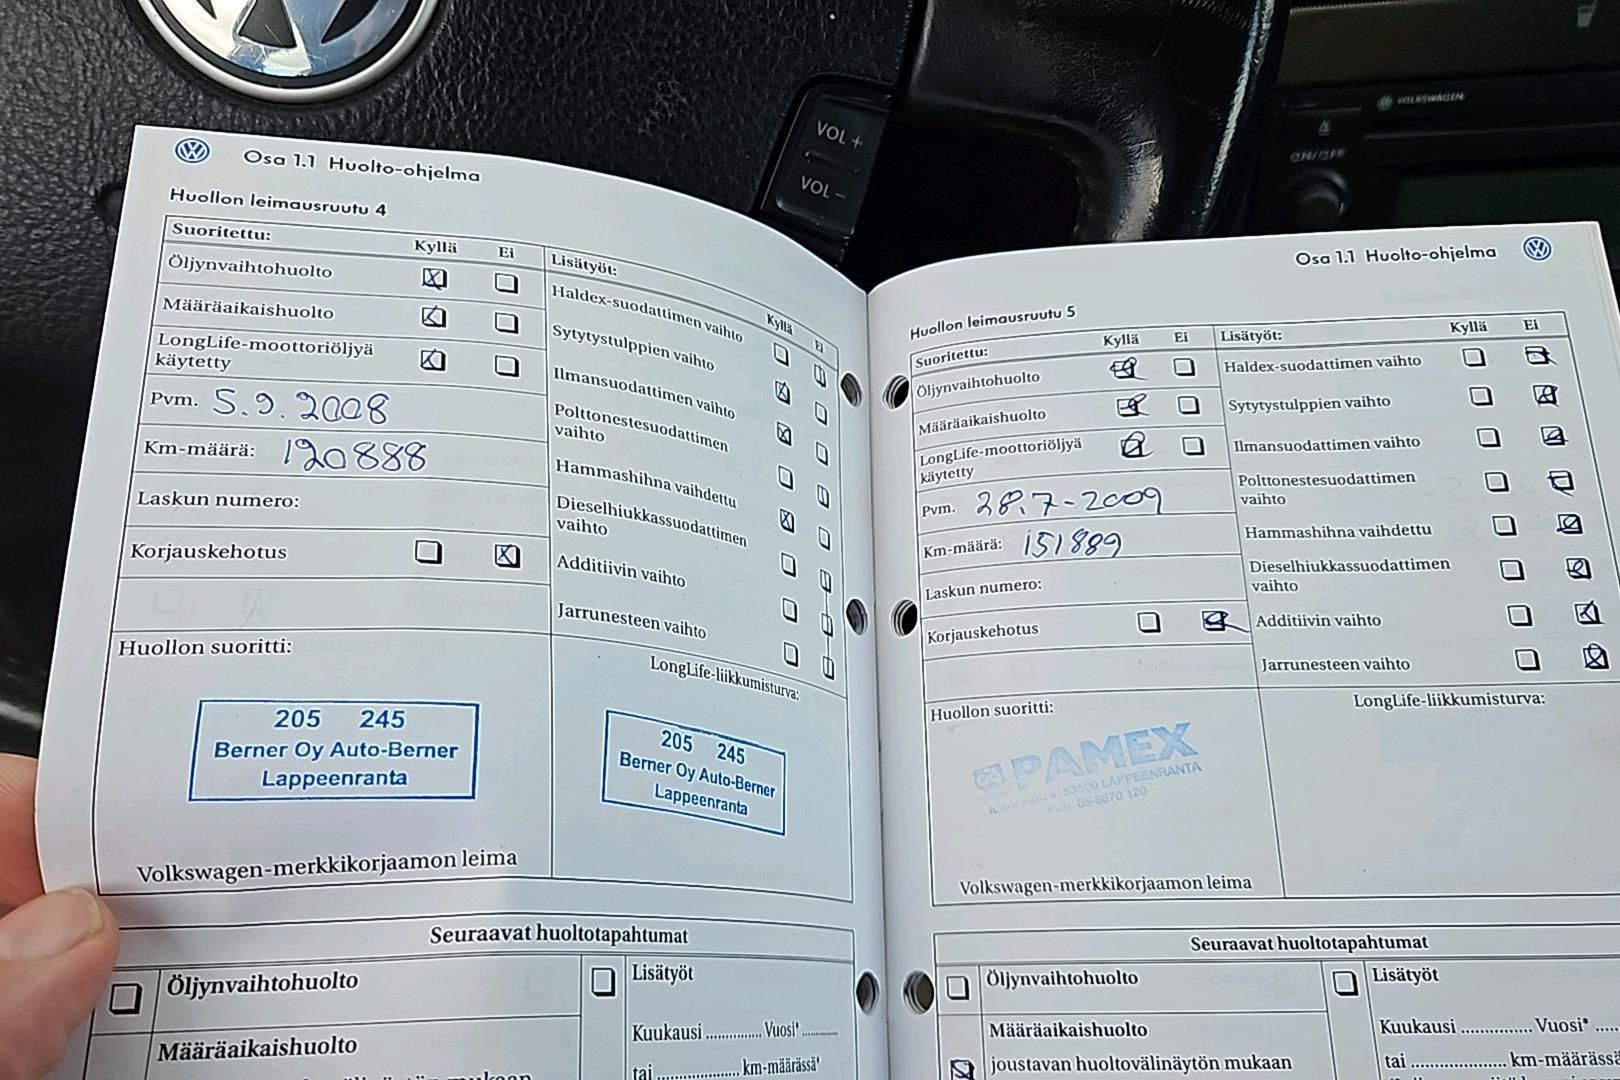 VOL +
VOL -
VOLKSWAGEN
ON/OFF
Osa 1.1 Huolto-ohjelma
Huollon leimausruutu 4
Suoritettu: Kyllä Ei
Öljynvaihtohuolto
Määräaikaishuolto
LongLife-moottoriöljyä
käytetty
Pvm. 5.9.2008
Km-määrä: 120888
Laskun numero:
Korjauskehotus
Lisätyöt: Kyllä Ei
Haldex-suodattimen vaihto
Sytytystulppien vaihto
Ilmansuodattimen vaihto
Polttonestesuodattimen
vaihto
Hammashihna vaihdettu
Dieselhiukkassuodattimen
vaihto
Additiivin vaihto
Jarrunesteen vaihto
Huollon suoritti:
205 245
Berner Oy Auto-Berner
Lappeenranta
Volkswagen-merkkikorjaamon leima
LongLife-liikkumisturva:
205 245
Berner Oy Auto-Berner
Lappeenranta
Seuraavat huoltotapahtumat
Öljynvaihtohuolto
Määräaikaishuolto
Lisätyöt
Kuukausi .............. Vuosi* .........
tai .................... km-määrässä*
Osa 1.1 Huolto-ohjelma
Huollon leimausruutu 5
Suoritettu: Kyllä Ei
Öljynvaihtohuolto
Määräaikaishuolto
LongLife-moottoriöljyä
käytetty
Pvm. 28.7-2009
Km-määrä: 151889
Laskun numero:
Korjauskehotus
Lisätyöt: Kyllä Ei
Haldex-suodattimen vaihto
Sytytystulppien vaihto
Ilmansuodattimen vaihto
Polttonestesuodattimen
vaihto
Hammashihna vaihdettu
Dieselhiukkassuodattimen
vaihto
Additiivin vaihto
Jarrunesteen vaihto
Huollon suoritti:
PAMEX
4, 53500 LAPPEENRANTA
Puh. 05-8870 120
Volkswagen-merkkikorjaamon leima
LongLife-liikkumisturva:
Seuraavat huoltotapahtumat
Öljynvaihtohuolto
Määräaikaishuolto
joustavan huoltovälinäytön mukaan
Lisätyöt
Kuukausi .............. Vuosi* .....
tai .................... km-määrässä